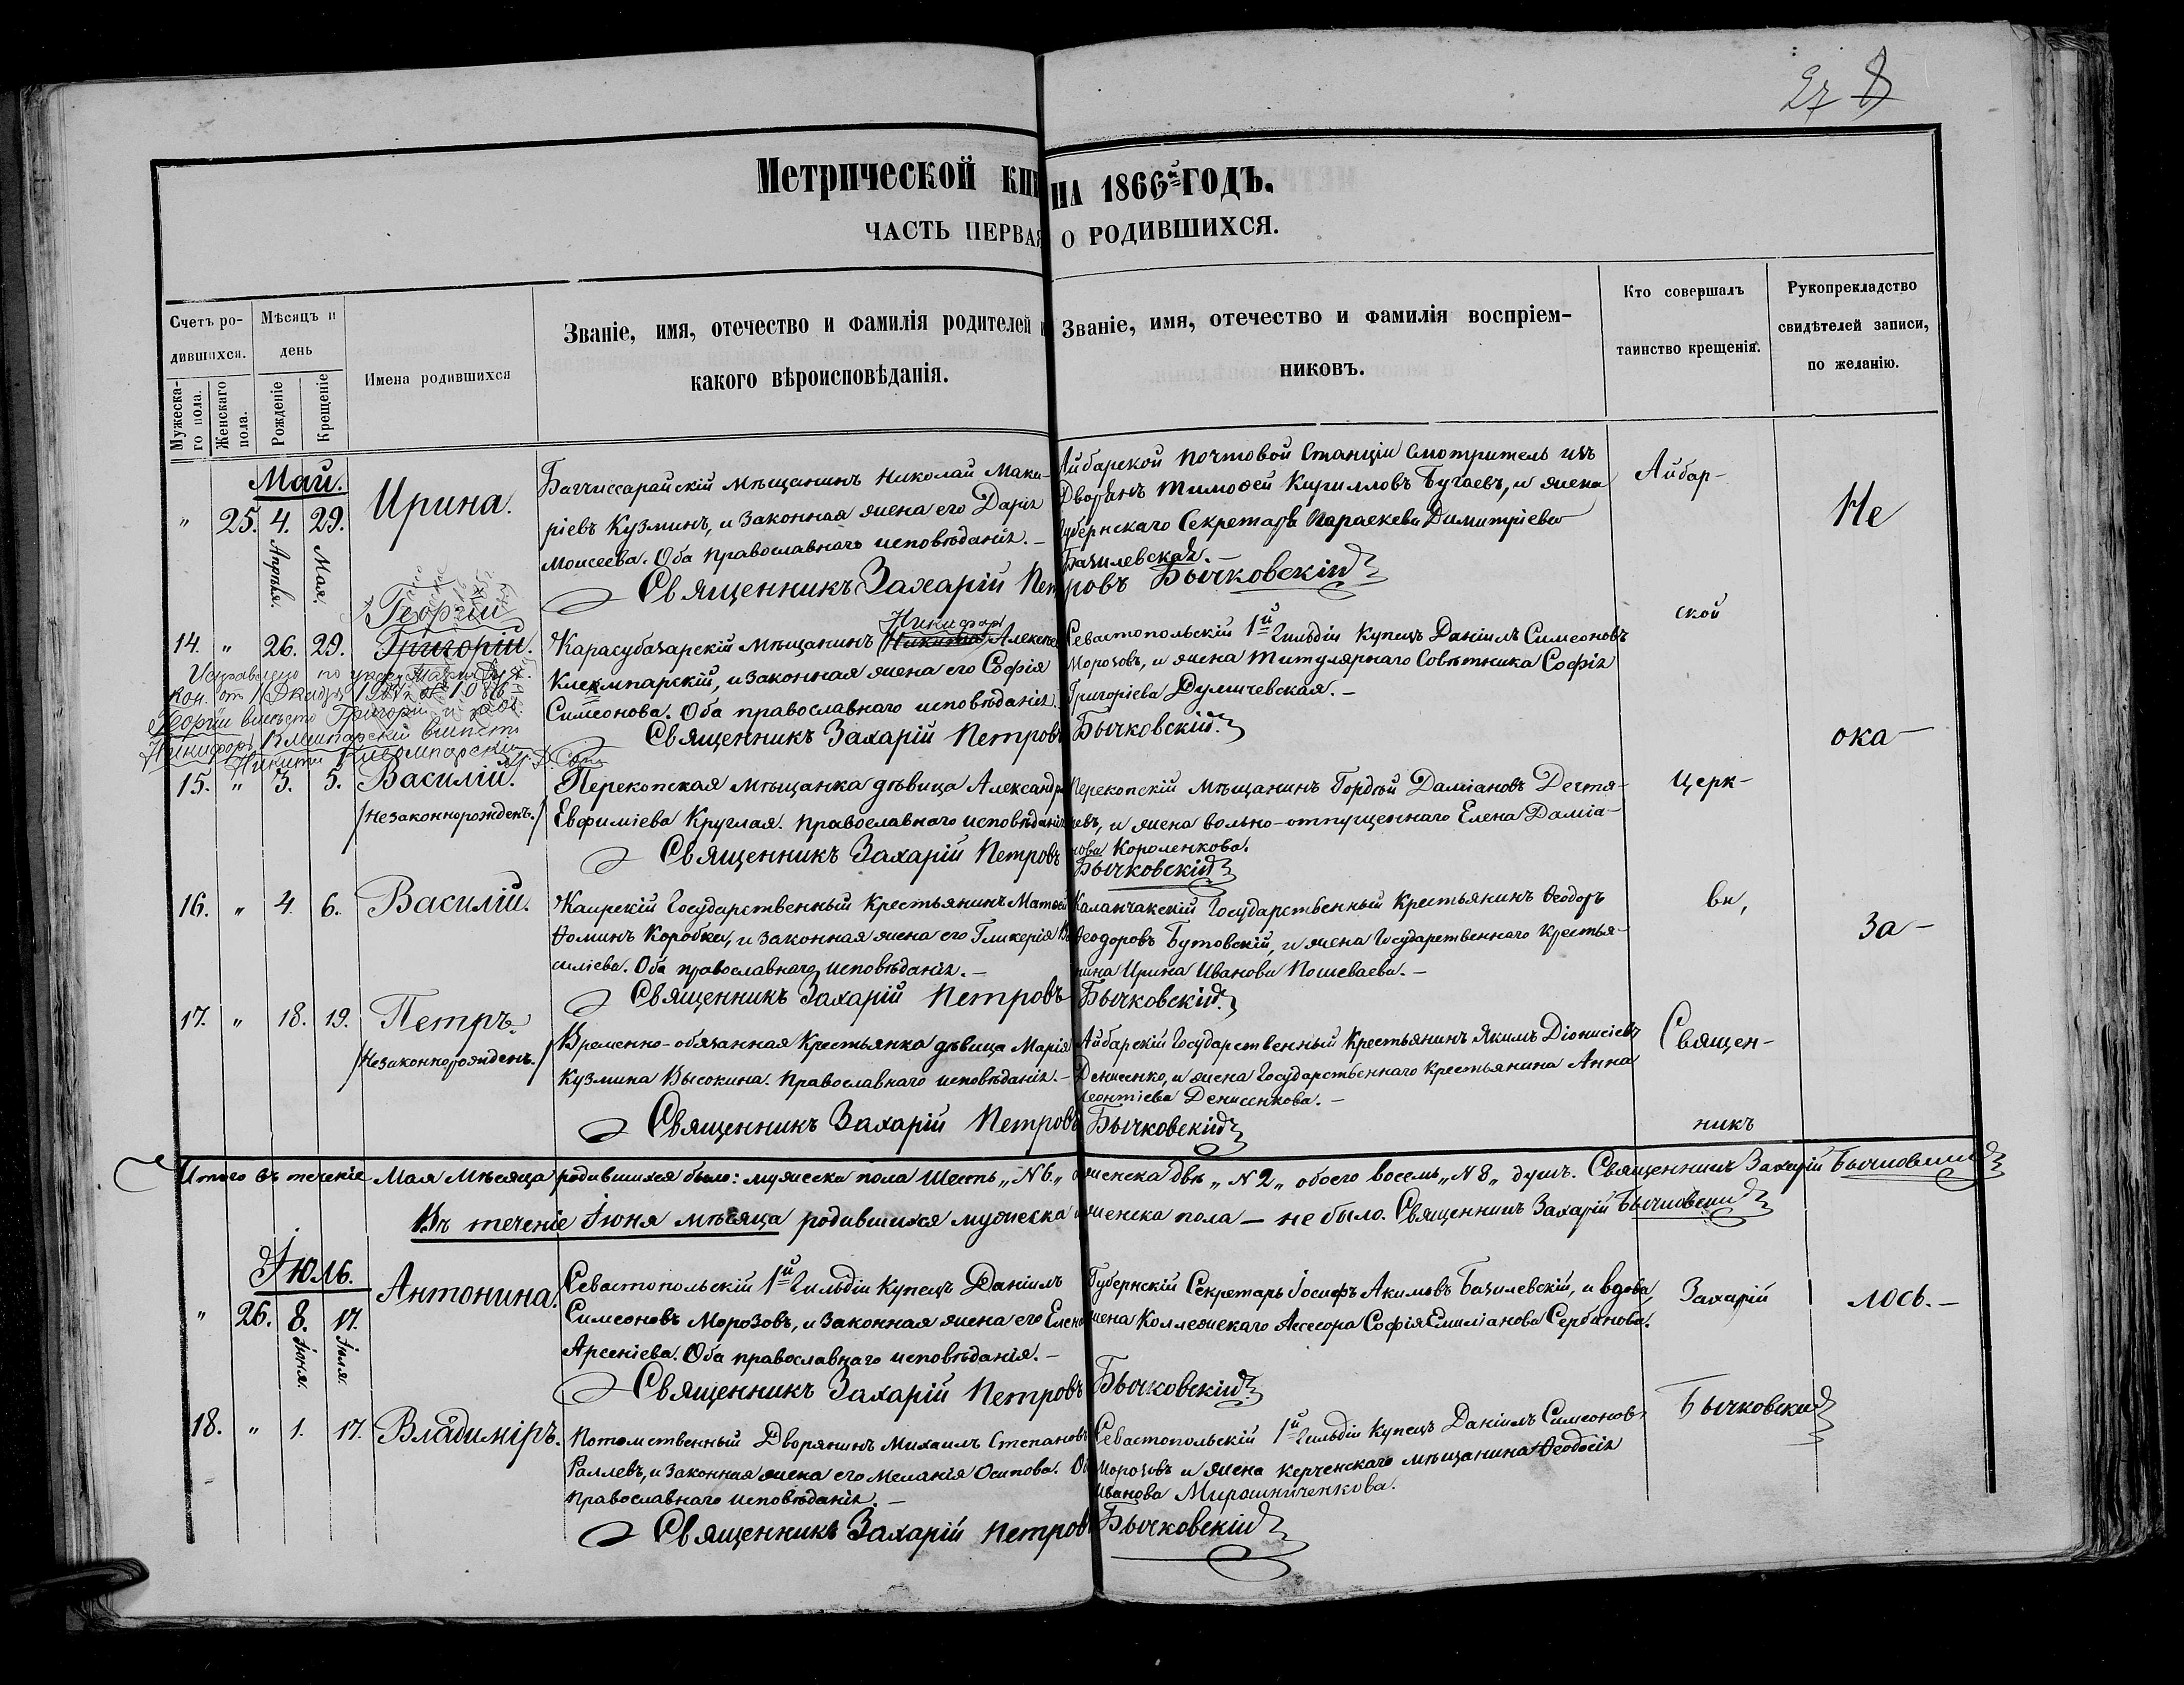 27 8
Метрической кни на 1866й годъ.
ЧАСТЬ ПЕРВАЯ О РОДИВШИХСЯ.
Счетъ родившихся.
Мужескаго пола.
Женскаго пола.
Мѣсяцъ и день
Рожденіе
Крещеніе
Имена родившихся
Званіе, имя, отечество и фамилія родителей и
какого вѣроисповѣданія.
Званіе, имя, отечество и фамилія воспріем-
никовъ.
Кто совершалъ
таинство крещенія.
Рукопрекладство
свидѣтелей записи,
по желанію.
Май.
" 25. 4. 29. Ирина.
Апрѣль. Мая.
Багчиссарайскій мѣщанинъ Николай Мака-
ріевъ Кузминъ, и законная жена его Дарія
Моисеева. Оба православнаго исповѣданія. –
Айбарской почтовой Станціи Смотритель изъ
Дворянъ Тимоѳей Кирилловъ Бугаевъ, и жена
Губернскаго Секретаря Параскева Димитріева
Базилевская. –
Священникъ Захарій Петровъ Бычковскій
Георгій
14. " 26. 29. Григорій.
Карасубазарскій мѣщанинъ Никифоръ Никита Алексѣев
Клеомпарскій, и законная жена его Софія
Симеонова. Оба православнаго исповѣданія.
Севастопольскій 1й Гильдіи Купецъ Даніилъ Симеоновъ
Морозовъ, и жена Титулярнаго Совѣтника Софія
Григоріева Думичевская. –
Священникъ Захарій Петровъ Бычковскій
Исправлено по указу Тавр. Дух.
Кон. от
Георгій вмѣсто Григорій и
Никифоръ Клеипарскій вмѣсто
Никиты Клеомпарскій
15. " 3. 5. Василій.
/Незаконнорожденъ./
Перекопская мѣщанка дѣвица Александра
Евфиміева Круглая. Православнаго исповѣданія
Перекопскій мѣщанинъ Гордѣй Даміановъ Дегтя-
ревъ, и жена вольно-отпущеннаго Елена Даміа-
нова Короленкова.
Священникъ Захарій Петровъ Бычковскій
16. " 4. 6. Василій.
Каирскій Государственный Крестьянинъ Матѳей
Ѳоминъ Коробка, и законная жена его Гликерія Ва
силіева. Оба православнаго исповѣданія. –
Каланчакскій Государственный Крестьянинъ Ѳеодоръ
Ѳеодоровъ Бутовскій, и жена Государственнаго Крестья-
нина Ирина Иванова Пошеваева. –
Священникъ Захарій Петровъ Бычковскій
17. " 18. 19. Петръ.
/Незаконнорожденъ./
Временно-обязанная Крестьянка дѣвица Марія
Кузмина Высокина. Православнаго исповѣданія. –
Айбарскій Государственный Крестьянинъ Якимъ Діонисіевъ
Денисенко, и жена Государственнаго Крестьянина Анна
Леонтіева Денисенкова. –
Священникъ Захарій Петровъ Бычковскій
Итого въ теченіе Мая мѣсяца родившихся было: мужеска пола шесть „N 6.„ женска двѣ „N 2„ обоего восемь „N 8„ душъ. Священникъ Захарій Бычковскій
Въ теченіе Іюня мѣсяца родившихся мужеска и женска пола – не было. Священникъ Захарій Бычковскій
Іюль.
" 26. 8. 17. Антонина.
Іюня. Іюля.
Севастопольскій 1й Гильдіи Купецъ Даніилъ
Симеоновъ Морозовъ, и законная жена его Елена
Арсеніева. Оба православнаго исповѣданія. –
Губернскій Секретарь Іосифъ Акимовъ Базилевскій, и вдова,
жена Коллежскаго Ассесора Софія Емиліанова Сербинова.
Священникъ Захарій Петровъ Бычковскій
18. " 1. 17. Владиміръ.
Потомственный Дворянинъ Михаилъ Степановъ
Раллевъ, и законная жена его Меланія Осипова. Оба
православнаго исповѣданія. –
Севастопольскій 1й Гильдіи Купецъ Даніилъ Симеоновъ
Морозовъ и жена керченскаго мѣщанина Ѳеодосія
Иванова Мирошниченкова.
Священникъ Захарій Петровъ Бычковскій
Айбар-
ской
Церк-
ви,
Священ-
никъ
Захарій
Бычковскій
Не
ока-
за-
лось. –